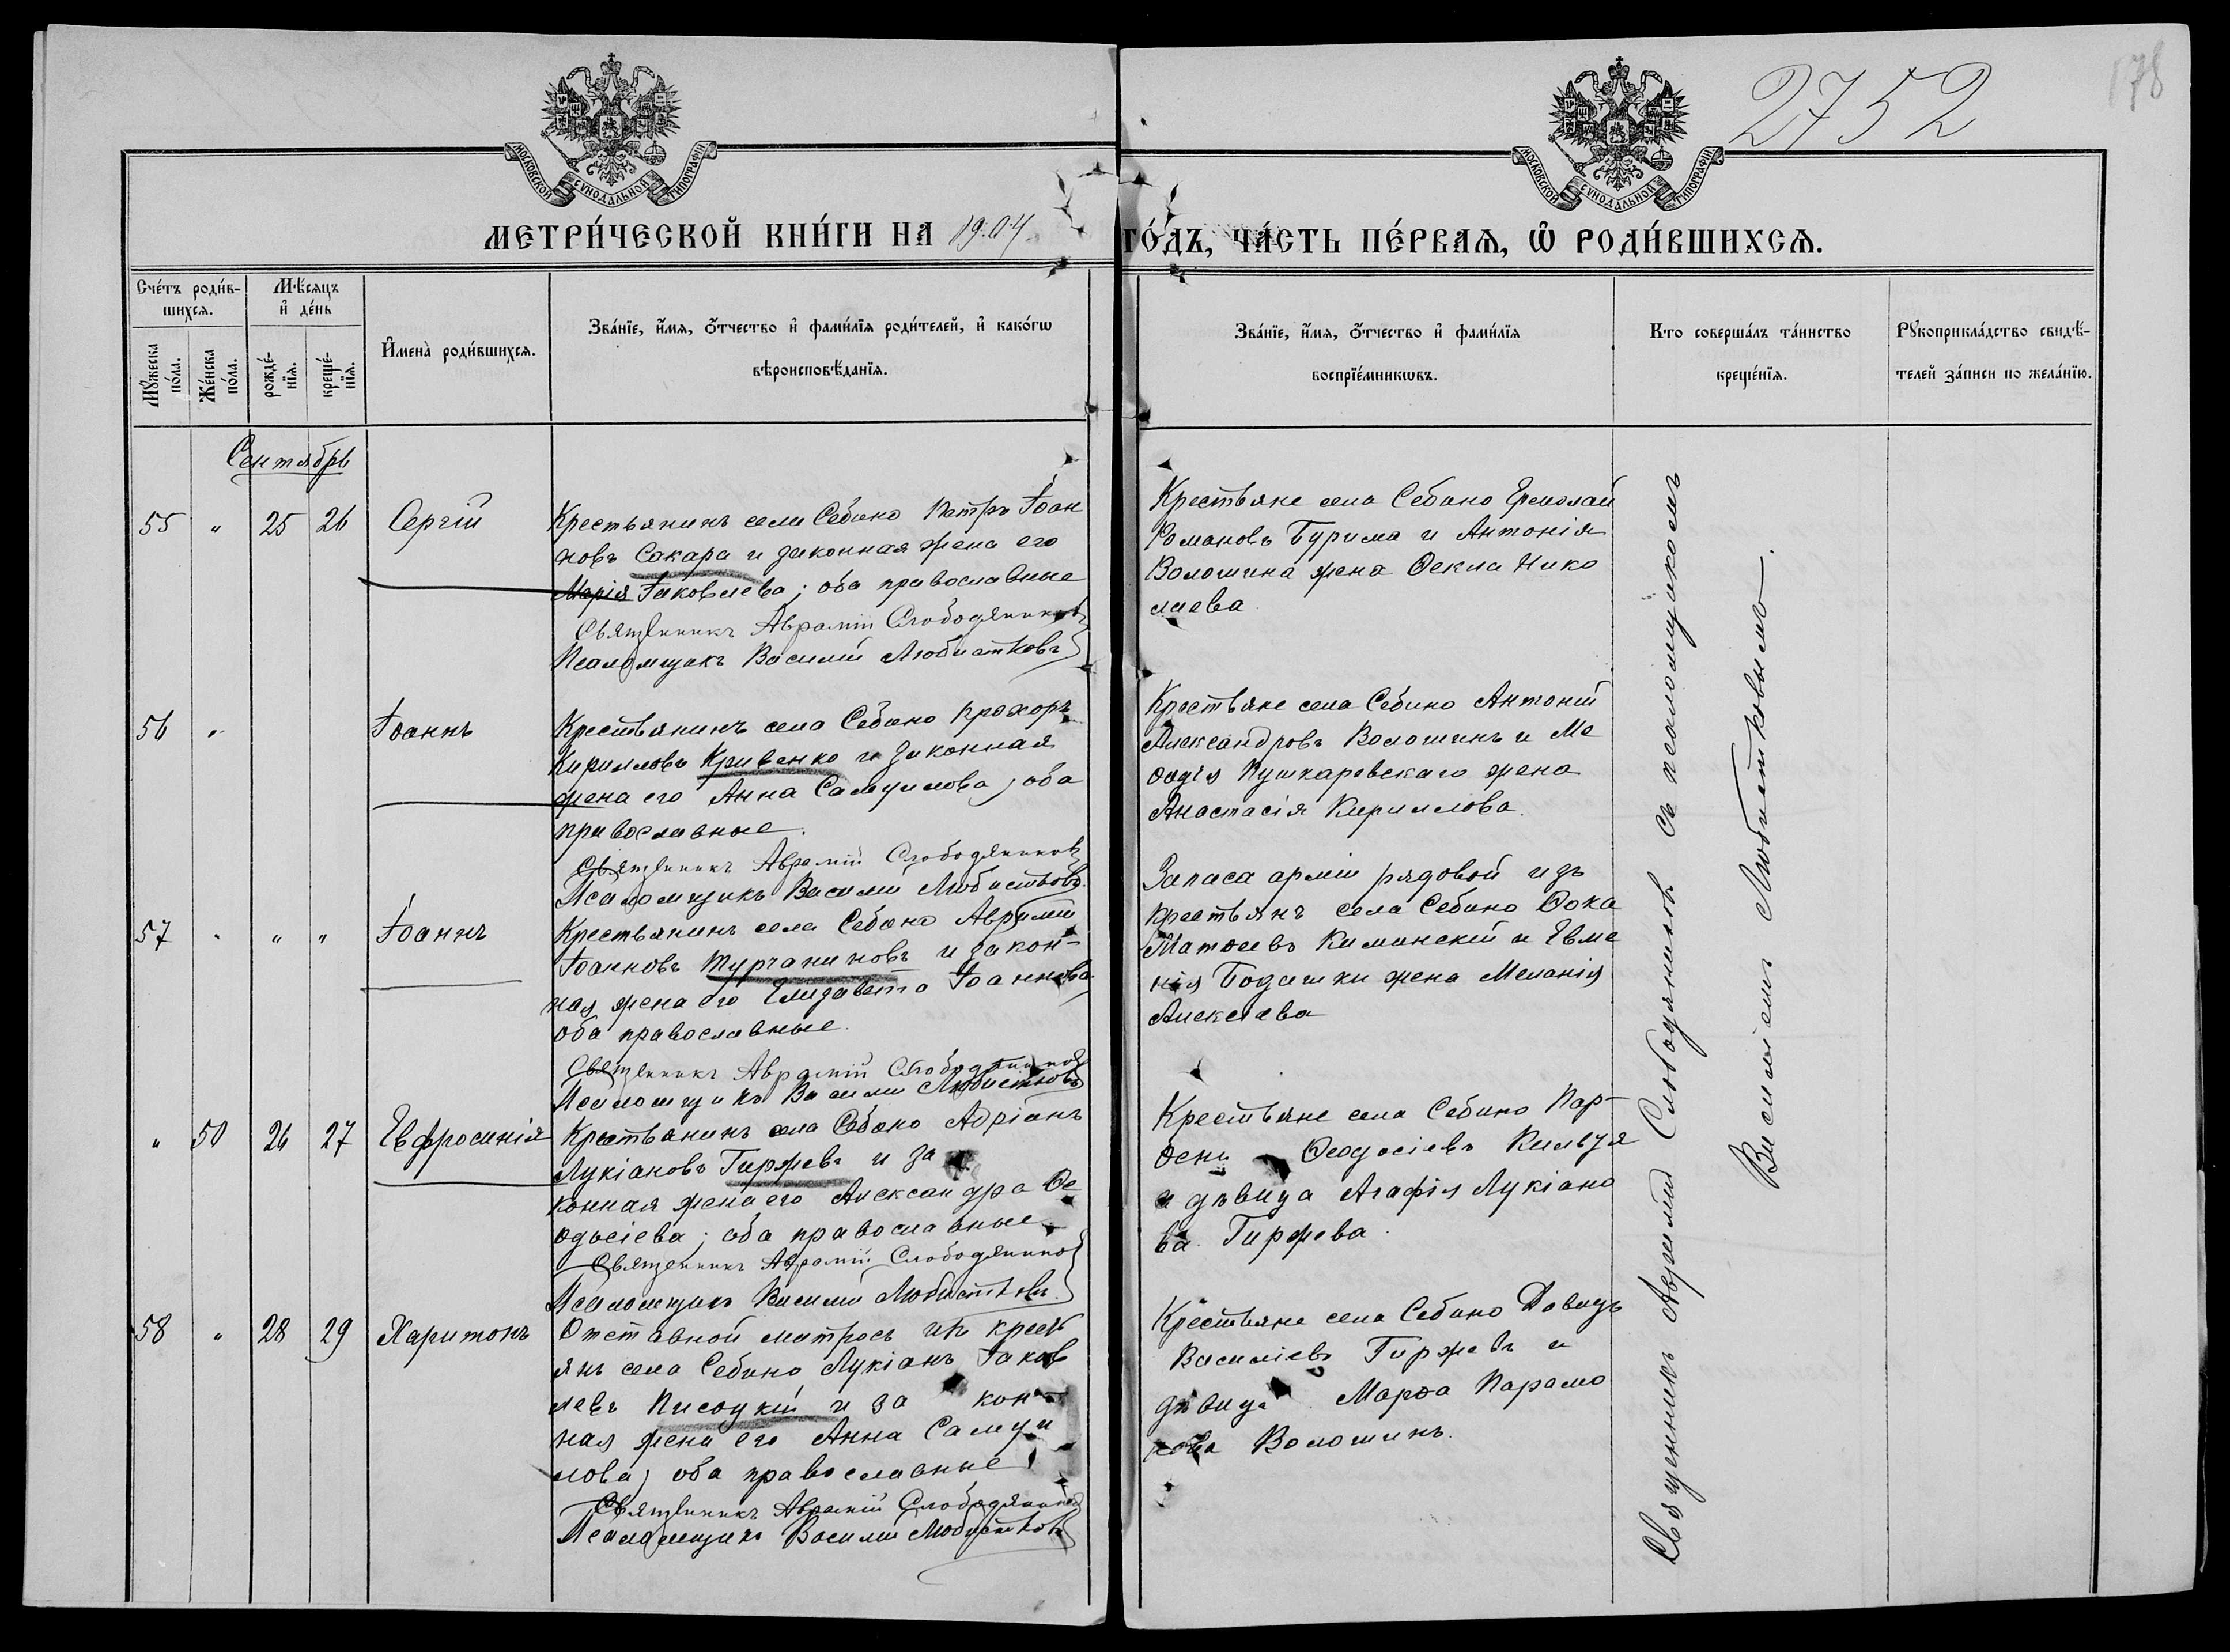 2752
178
МОСКОВСКОЙ СѴНОДАЛЬНОЙ ТИПОГРАФІИ
МОСКОВСКОЙ СѴНОДАЛЬНОЙ ТИПОГРАФІИ
МЕТРИ́ЧЕСКОЙ КНИ́ГИ НА 1904
ГО́ДЪ, ЧА́СТЬ ПЕ́РВАѦ, Ѽ РОДИ́ВШИХСѦ.
Сче́тъ роди́в-
шихсѧ.
Мѣ́сѧцъ
и҆ де́нь
Мꙋ́жеска
по́ла.
Же́нска
по́ла.
рожде́-
нїѧ.
креще́-
нїѧ.
И҆мена̀ роди́вшихсѧ.
Зва́нїе, и҆́мѧ, ѻ҆́тчество и҆ фами́лїѧ роди́телей, и҆ како́гѡ
вѣроисповѣ́данїѧ.
Зва́нїе, и҆́мѧ, ѻ҆́тчество и҆ фами́лїѧ
воспрїе́мникѡвъ.
Кто соверша́лъ та́инство
креще́нїѧ.
Рꙋкоприкла́дство свидѣ́-
телей за́писи по жела́нїю.
Сентябрь
55 " 25 26 Сергій
Крестьянинъ села Себино Петръ Іоан
новъ Сакара и законная жена его
Марія Іаковлева; оба православные
Священникъ Аврамій Слободяниковъ
Псаломщикъ Василій Любистковъ
Крестьяне села Себино Ермолай
Романовъ Бурима и Антонія
Волошина жена Ѳекла Нико
лаева.
56 " Іоаннъ
Крестьянинъ села Себино Прохоръ
Кирилловъ Кривенко и законная
жена его Анна Самуилова, оба
православные.
Священникъ Аврамій Слободяниковъ
Псаломщикъ Василій Любистковъ.
Крестьяне села Себино Антоній
Александровъ Волошинъ и Ме
ѳодія Пушкаревскаго жена
Анастасія Кириллова.
57 " " " Іоаннъ
Крестьянинъ села Себино Аврамій
Іоанновъ Турчаниновъ и закон-
ная жена его Елизавета Іоаннова
оба православные.
Священникъ Аврамій Слободяниковъ
Псаломщикъ Василій Любистковъ
Запаса арміи рядовой изъ
крестьянъ села Себино Ѳока
Матѳеевъ Киминскій и Евме
нія Бодашки жена Меланія
Алексіева
" 50 26 27 Евфросинія
Крестьянинъ села Себино Адріанъ
Лукіановъ Гиржевъ и за
конная жена его Александра Ѳе
одосіева; оба православные
Священникъ Аврамій Слободяниковъ
Псаломщикъ Василій Любистковъ.
Крестьяне села Себино Пар-
ѳеній Ѳеодосіевъ
и дѣвица Агафія Лукіано
ва Гиржева.
58 " 28 29 Харитонъ
Отставной матросъ изъ кресть
янъ села Себино Лукіанъ Іаков
левъ Писоцкій и за кон-
ная жена его Анна Самуи
лова, оба православные
Священникъ Аврамій Слободяниковъ
Псаломщикъ Василій Любистковъ
Крестьяне села Себино Давидъ
Василіевъ Гиржевъ и
дѣвица Марѳа Парамо
нова Волошинъ.
Священникъ Аврамій Слободяниковъ съ псаломщикомъ
Василіемъ Любистковымъ.